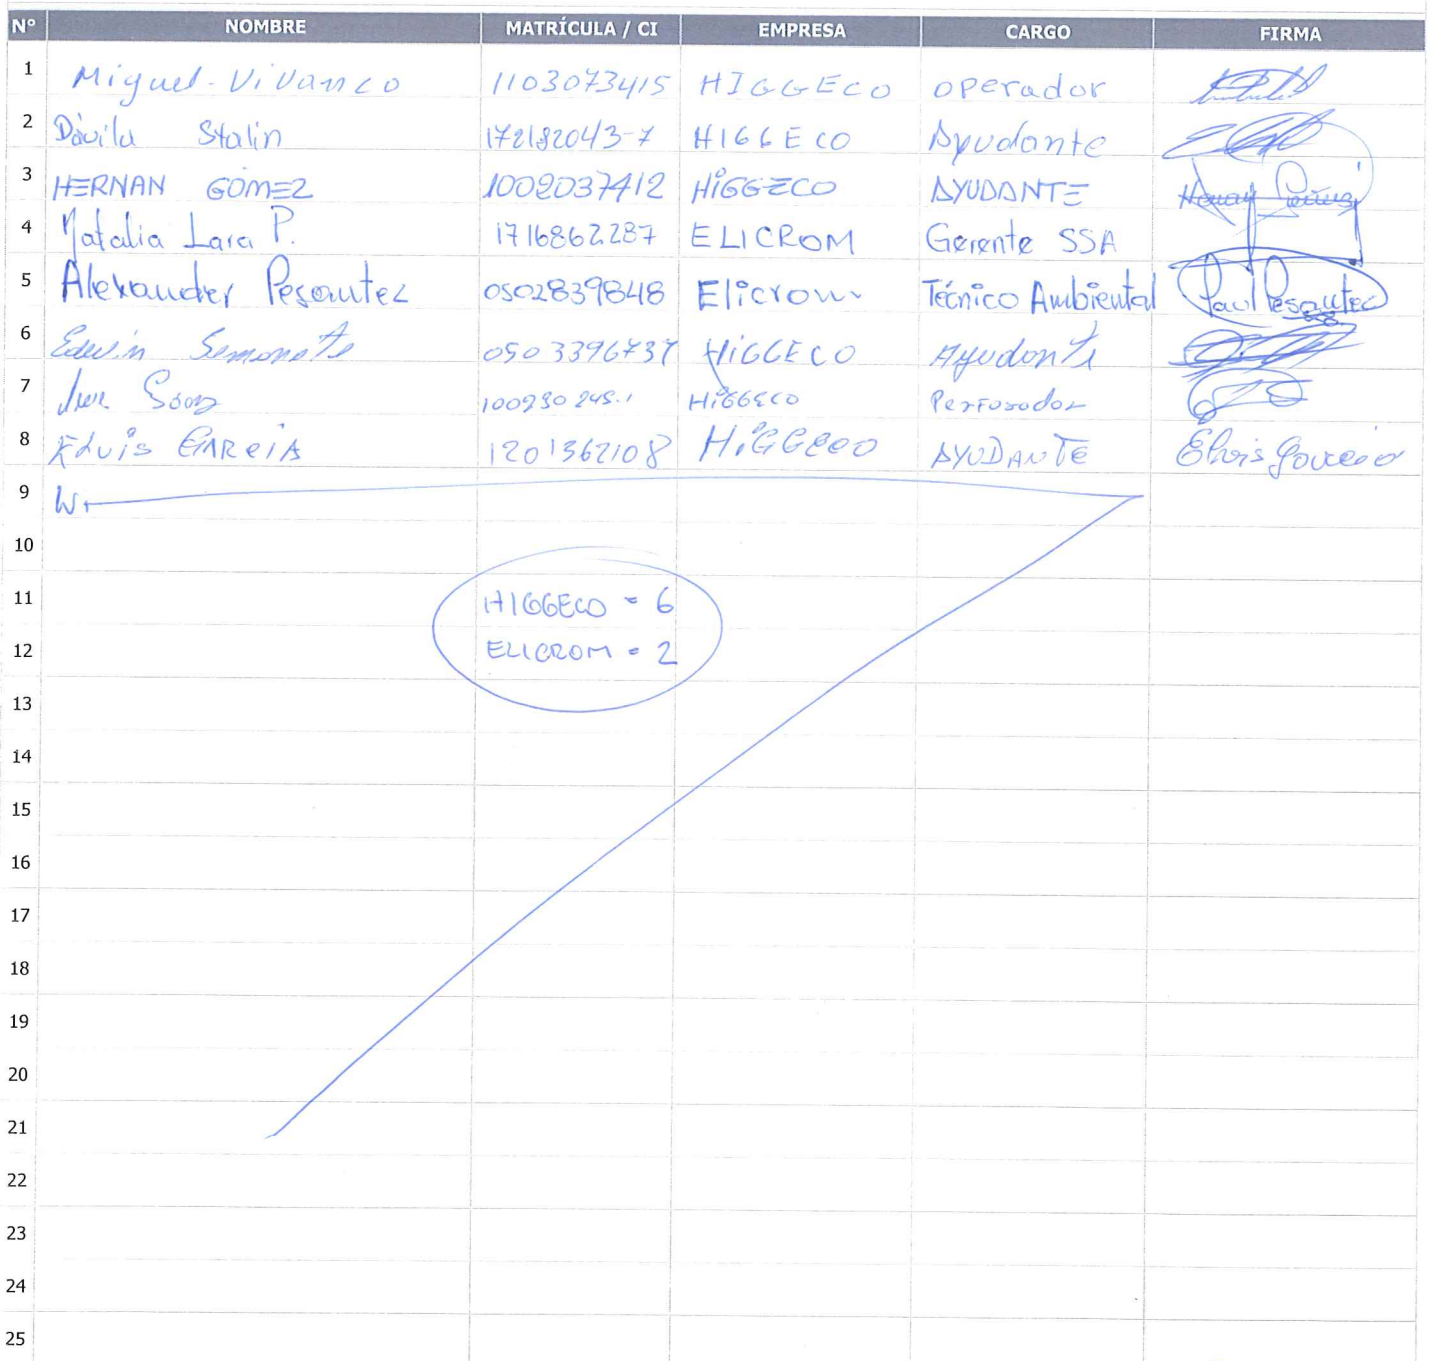 Nº NOMBRE MATRÍCULA / CI EMPRESA CARGO FIRMA
1 Miguel Vivanco 1103073415 HIGGECO operador
2 Dávila Stalin 172182043-7 HIGGECO Ayudante
3 HERNAN GOMEZ 1002037412 HIGGECO AYUDANTE
4 Natalia Lara P. 1716862287 ELICROM Gerente SSA
5 Alexander Pesantez 0502839848 Elicrom Técnico Ambiental Paul Pesantez
6 Edwin 0503396737 HIGGECO Ayudante
7 HIGGECO Perforador
8 ELVIS GARCIA 1201362108 HIGGECO AYUDANTE Elvis
9
10
11 HIGGECO = 6
12 ELICROM = 2
13
14
15
16
17
18
19
20
21
22
23
24
25